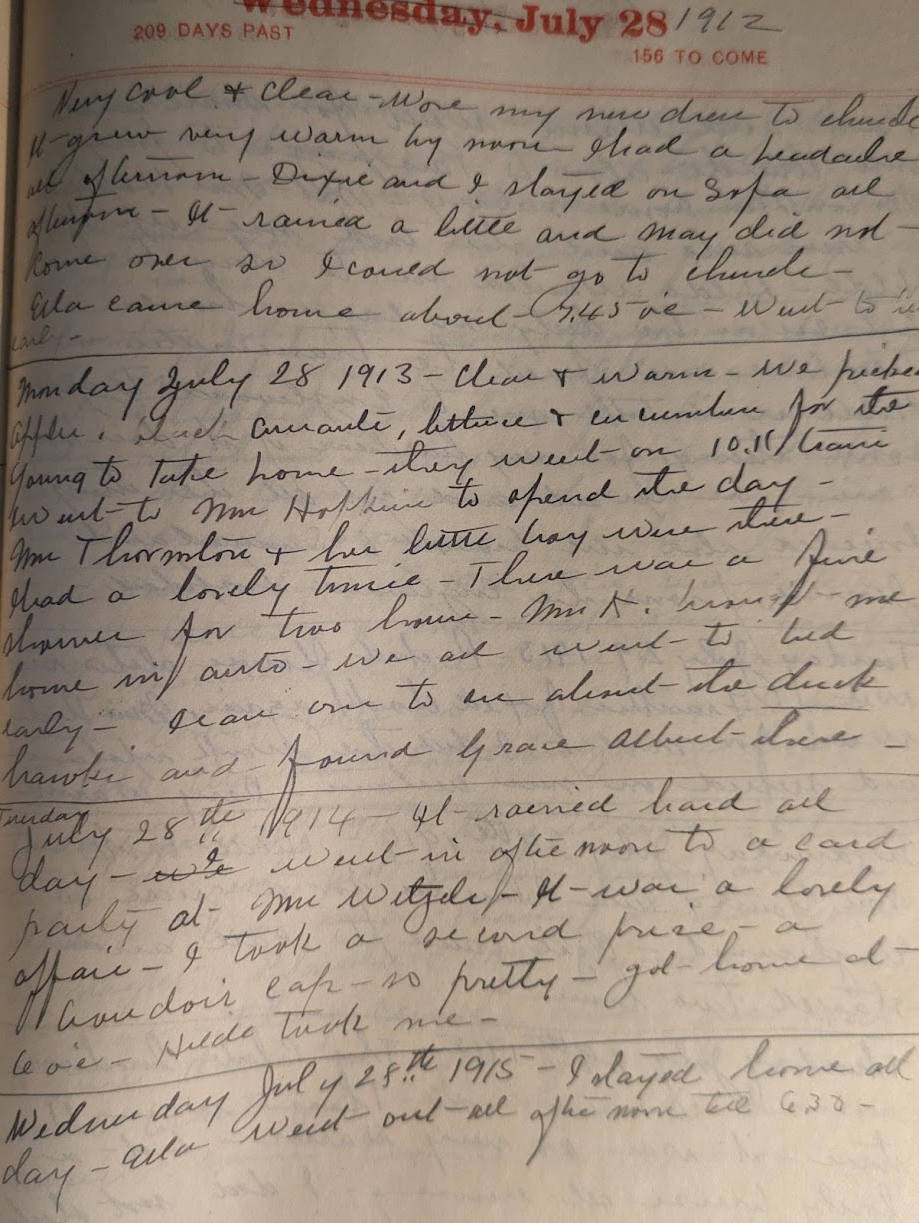 Wednesday, July 28 1912
209 DAYS PAST
156 TO COME
Very cool & clear - Wore my new dress to church
It grew very warm by noon I had a headache
all afternoon - Dixie and I stayed on Sofa all
afternoon - It rained a little and May did not
come over so I could not go to church -
Ella came home about 7.45 oc - Went to
early -
Monday July 28 1913 - Clear & warm - We picked
apples, black currants, lettuce & cucumbers for the
Young to take home - they went on 10.11 train
Went to Mrs Hopkins to spend the day -
Mrs Thornston & her little boy were there -
I had a lovely time - There was a fine
shower for two hours - Mrs K. brought me
home in auto - We all went to bed
early - over to see about the duck
hawks and found Grace Albert there -
Tuesday
July 28th 1914 - It rained hard all
day - we I went in afternoon to a card
party at Mrs Wetzels - It was a lovely
affair - I took a second prize - a
boudoir cap - so pretty - got home at
6 oc - Hilda took me -
Wednesday July 28th 1915 - I stayed home all
day - Ella went out all afternoon till 6.30 -